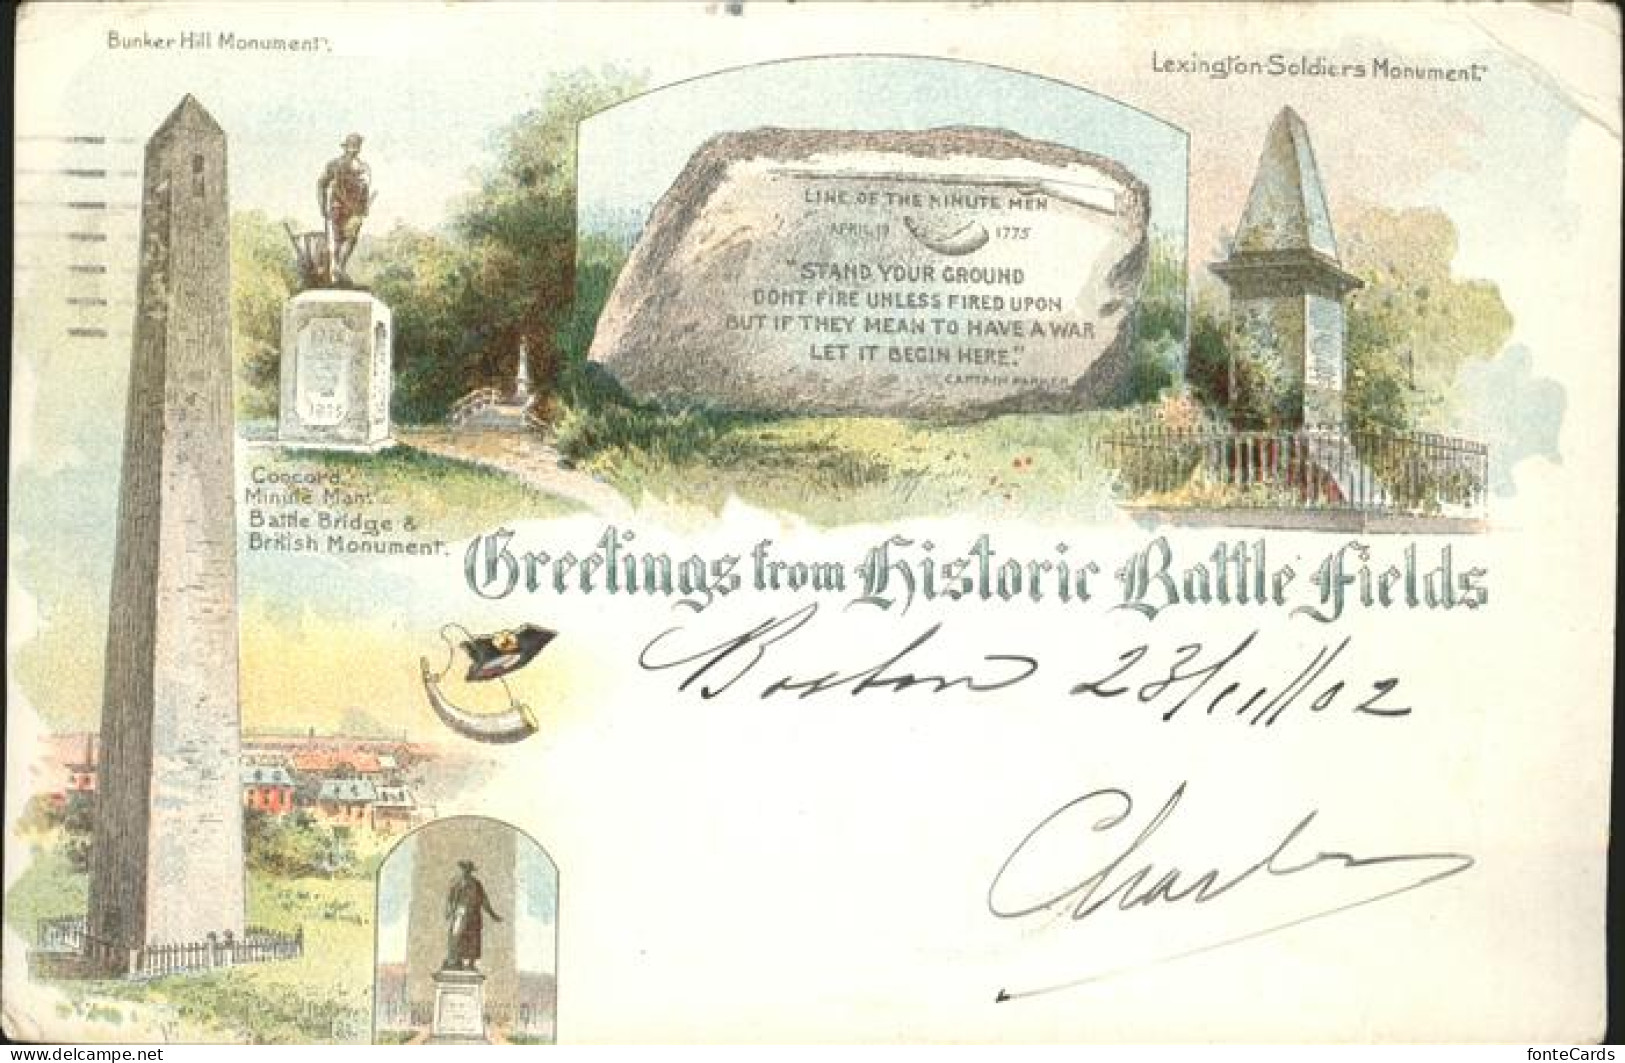 Bunker Hill Monument.
Lexington Soldiers Monument.
LINE OF THE MINUTE MEN
APRIL 19 1775
"STAND YOUR GROUND
DONT FIRE UNLESS FIRED UPON
BUT IF THEY MEAN TO HAVE A WAR
LET IT BEGIN HERE."
CAPTAIN PARKER
1775
1875
Concord
Minute Man
Battle Bridge &
British Monument.
Greetings from Historic Battle Fields
Boston 23/11/02
Charles
www.delcampe.net
fonteCards